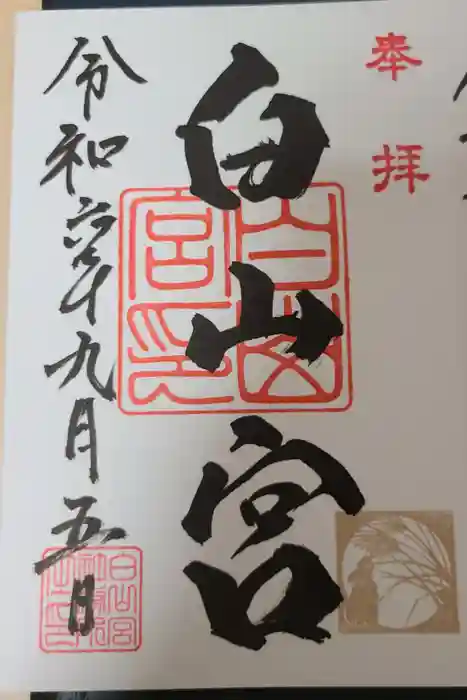 奉拝
白山宮
白山宮印
令和六年十九月五日